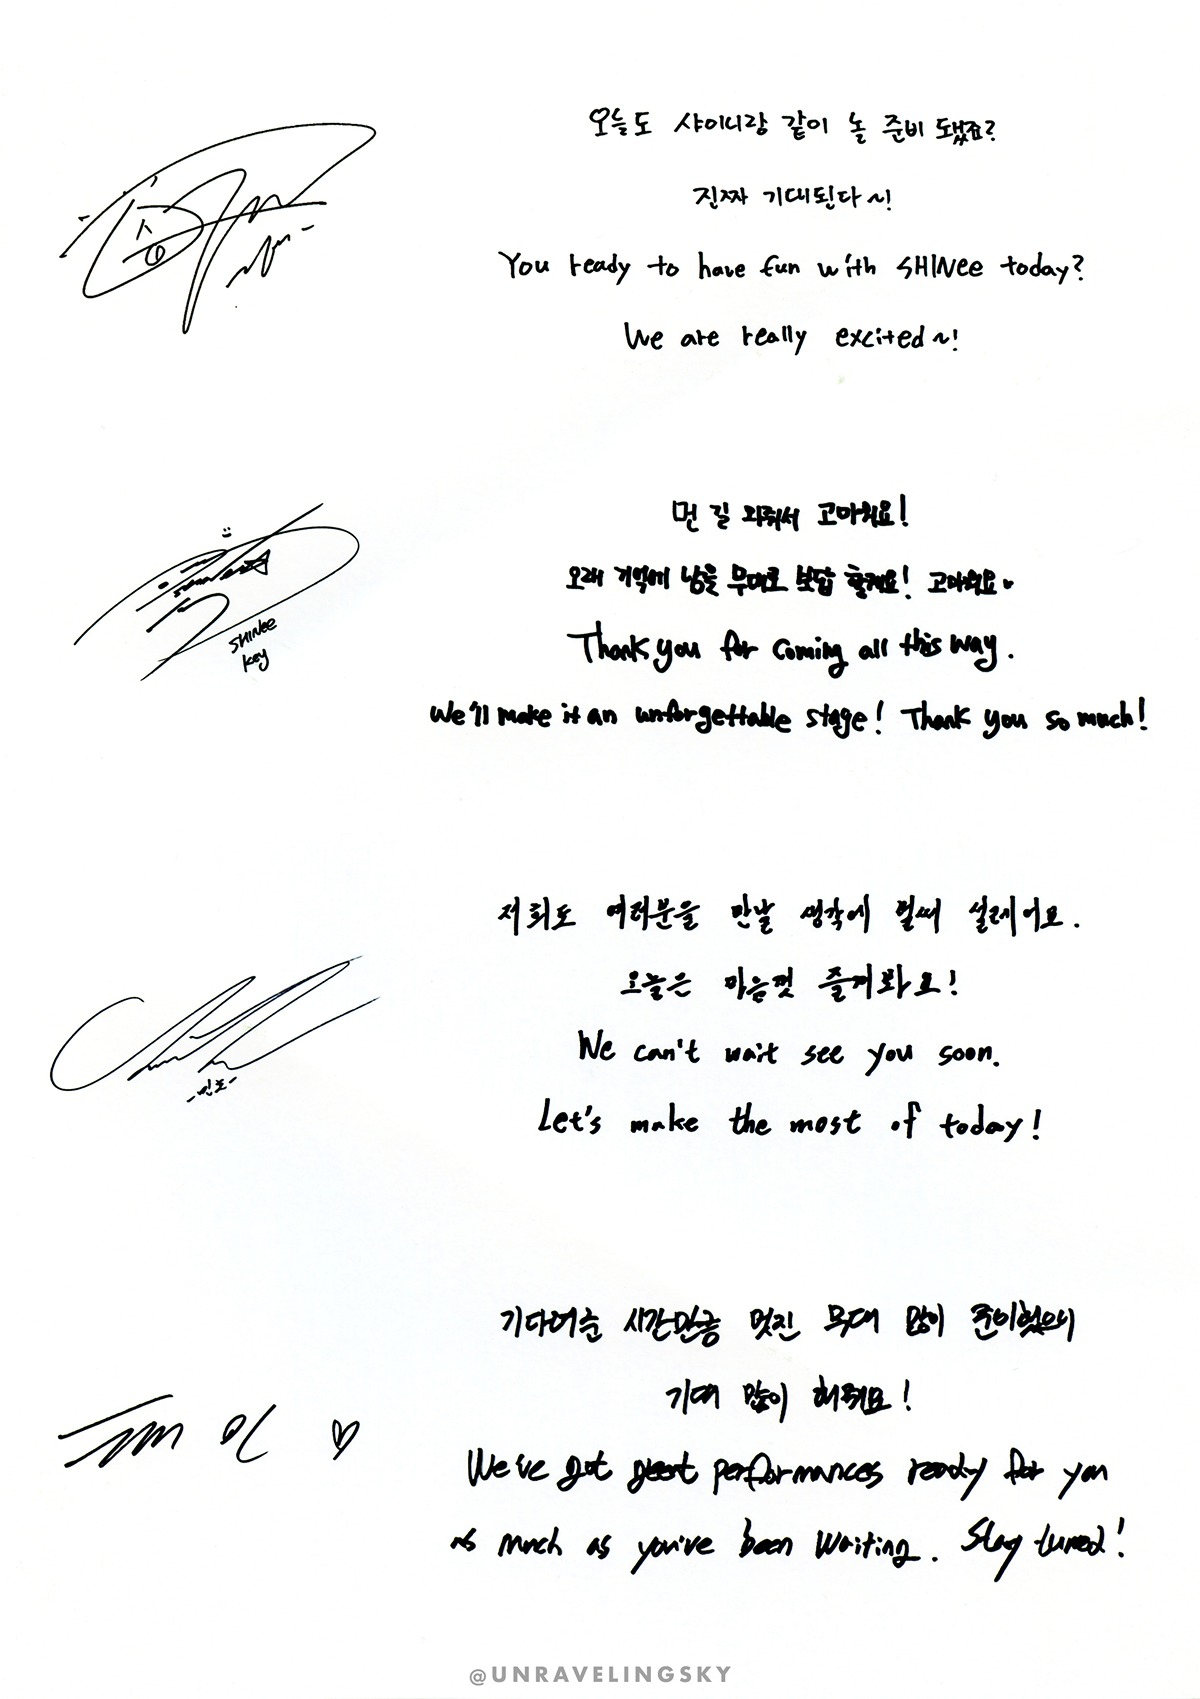 오늘도 샤이니랑 같이 놀 준비 됐죠?
진짜 기대된다~!
You ready to have fun with SHINee today?
We are really excited~!
먼 길 와줘서 고마워요!
오래 기억에 남을 무대로 보답 할게요! 고마워요♥
Thank you for coming all this way.
We'll make it an unforgettable stage! Thank you so much!
SHINee
Key
저희도 여러분을 만날 생각에 벌써 설레어요.
오늘은 마음껏 즐겨봐요!
We can't wait see you soon.
Let's make the most of today!
-민호-
기다려준 시간만큼 멋진 무대 많이 준비했으니
기대 많이 해줘요!
We've got great performances ready for you
as much as you've been waiting. Stay tuned!
@UNRAVELINGSKY